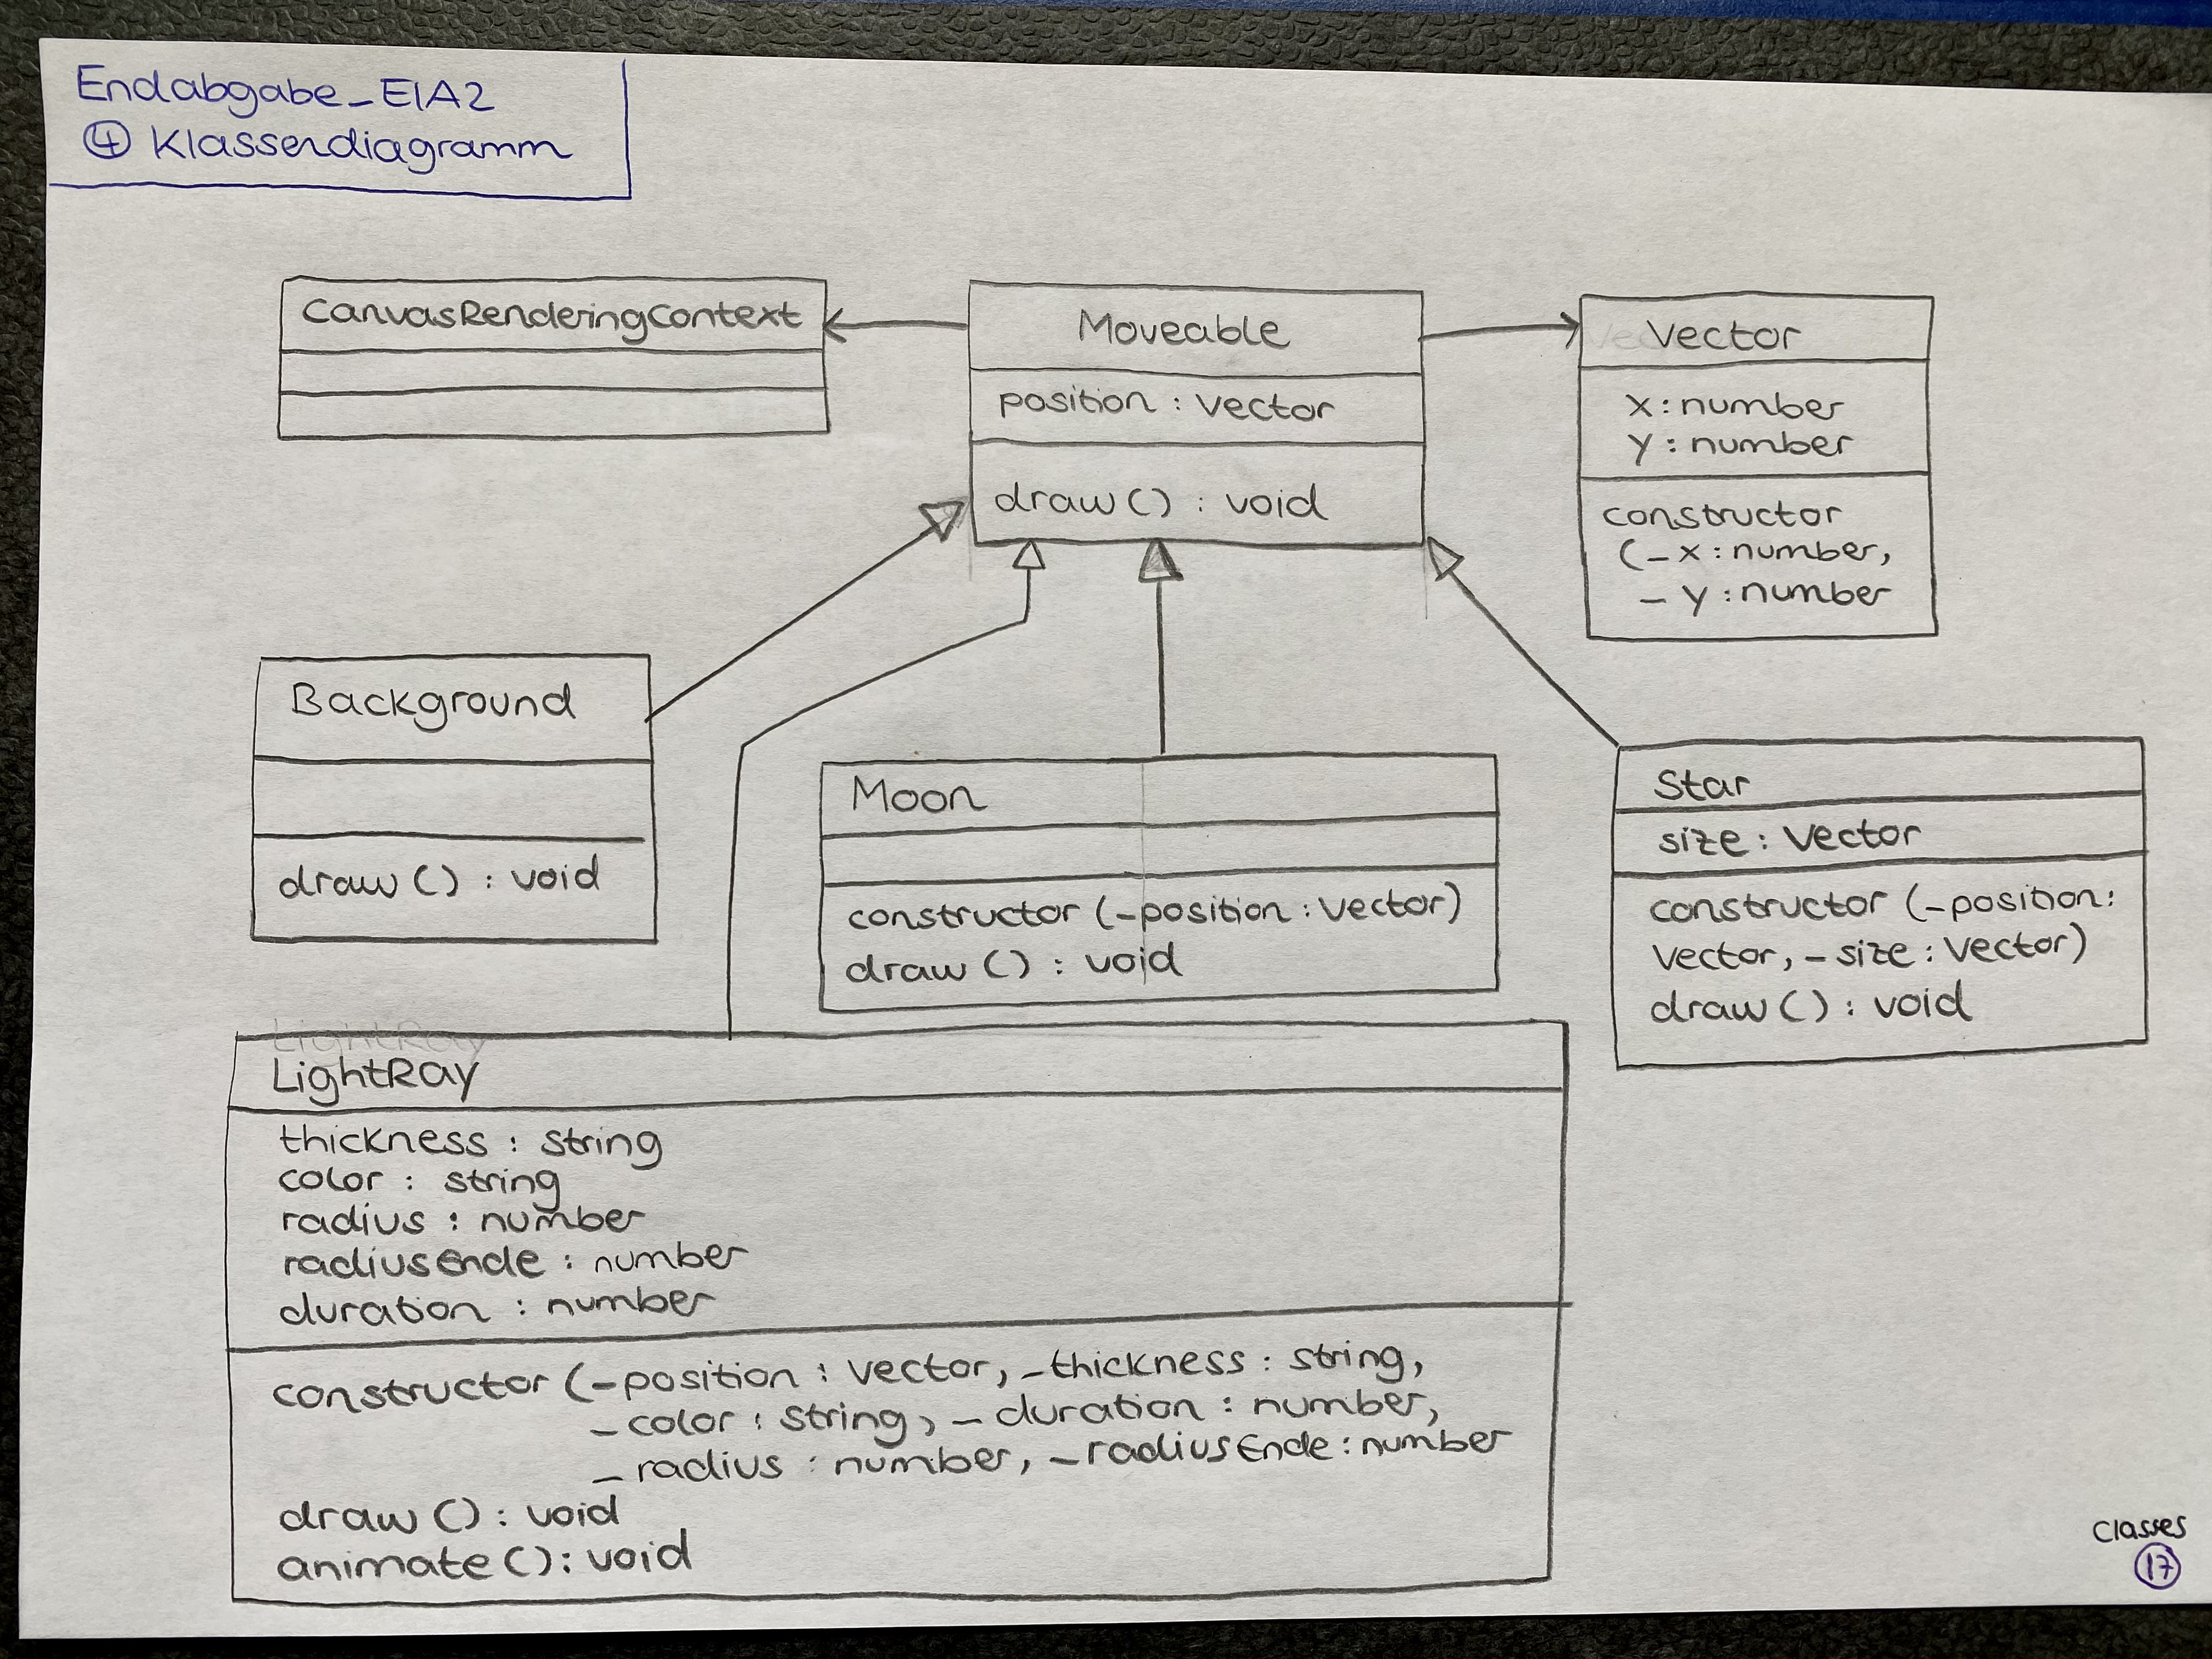 Endabgabe_EIA2
④ Klassendiagramm
CanvasRenderingContext
Moveable
position : Vector
draw () : void
Vector
x : number
y : number
constructor
(_x : number,
_y : number
Background
draw () : void
Moon
constructor (_position : Vector)
draw () : void
Star
size : Vector
constructor (_position :
Vector, _size : Vector)
draw () : void
LightRay
LightRay
thickness : string
color : string
radius : number
radiusEnde : number
duration : number
constructor (_position : Vector, _thickness : string,
_color : string, _duration : number,
_radius : number, _radiusEnde : number
draw () : void
animate () : void
Classes
⑰